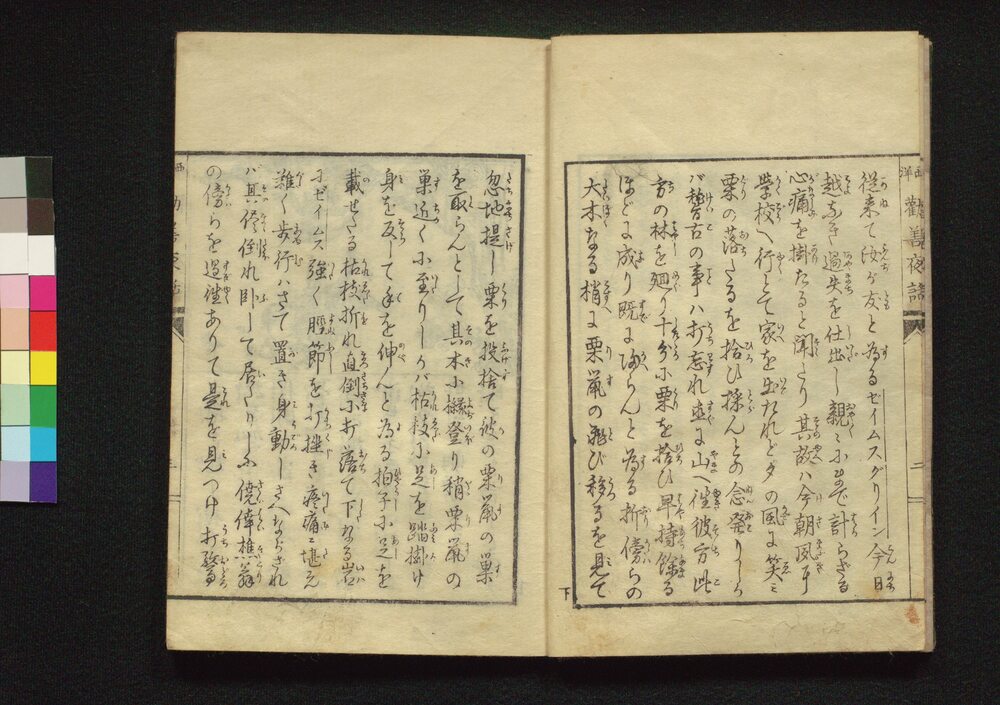 西洋勧善夜話
従来て汝が友と為るゼイムスグリイン今日
越なき過失を仕出し親々にまで計らざる
心痛を掛たると聞たり其故ハ今朝夙に
学校へ行とて家を出たれど夕の風に笑ミ
栗の落たるを拾ひ採んとの念発りしか
バ稽古の事ハ打忘れ直に山へ徃彼方此
方の林を廻り十分に栗を拾ひ早持餘る
ほどに成り既に帰らんと為る折傍らの
大木なる梢に栗鼠の飛び移るを見て
二
下
忽地提し栗を投捨て彼の栗鼠の巣
を取らんとして其木に攀登り稍栗鼠の
巣近く小至りしが枯枝に足を踏掛け
身を反して手を伸んと為る拍子に足を
載せたる枯枝折れ直倒に打落て下なる岩
にゼイムス強く脛節を打挫き疼痛に堪え
難く歩行ハさて置き身動しさへならされ
バ其儘倒れ卧して居たりしに僥倖樵翁
の傍らを過徃ありて是を見つけ打驚